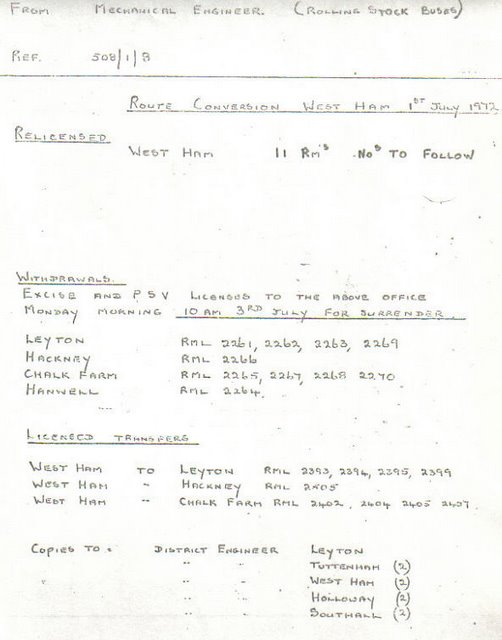 From Mechanical Engineer. (Rolling Stock Buses)
Ref. 508/1/B
Route Conversion West Ham 1st July 1972
Relicensed
West Ham 11 RMs .Nos to follow
Withdrawals.
Excise and PSV Licenses to the above office
Monday morning 10 am 3rd July for surrender.
Leyton RML 2261, 2262, 2263, 2269
Hackney RML 2266
Chalk Farm RML 2265, 2267, 2268 2270
Hanwell RML 2264.
Licensed transfers
West Ham to Leyton RML 2393, 2394, 2395, 2399
West Ham " Hackney RML 2405
West Ham " Chalk Farm RML 2402, 2404 2405 2437.
Copies to: District Engineer Leyton
" " Tuttenham (2)
" " West Ham (2)
" " Holloway (2)
" " Southall (2)